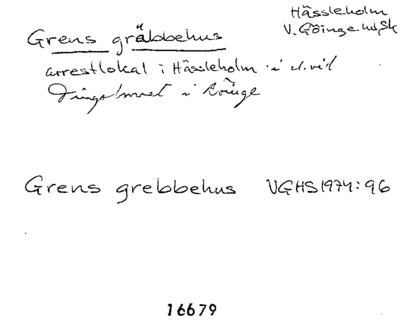 Hässleholm
V. Göinge hd, Sk
Grens gräbbehus
arrestlokal i Hässleholm i el. vid
Tingshuset i Röinge
Grens grebbehus VGHS 1974:96
16679